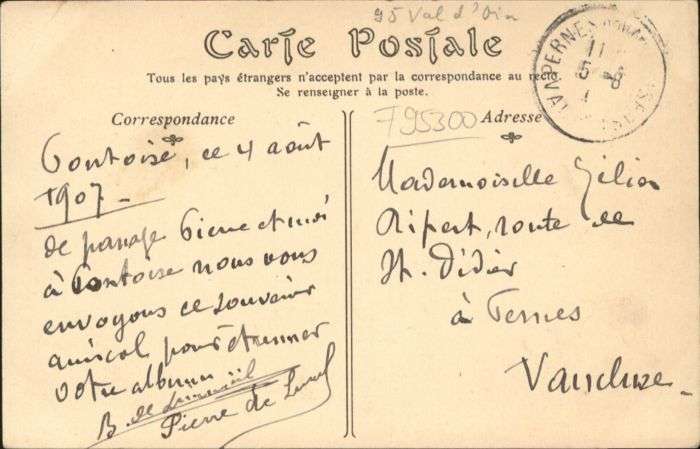 95 Val d'Oise
Carte Postale
Tous les pays étrangers n'acceptent par la correspondance au recto
Se renseigner à la poste.
Correspondance
Pontoise, ce 4 août
1907.
de passage Pierre et moi
à Pontoise nous vous
envoyons ce souvenir
amical pour étrenner
votre album
B. de
Pierre de
795300
Adresse
Mademoiselle
Ripert, route de
St. Didier
à Pernes
Vaucluse
PERNES
11
5 - 8